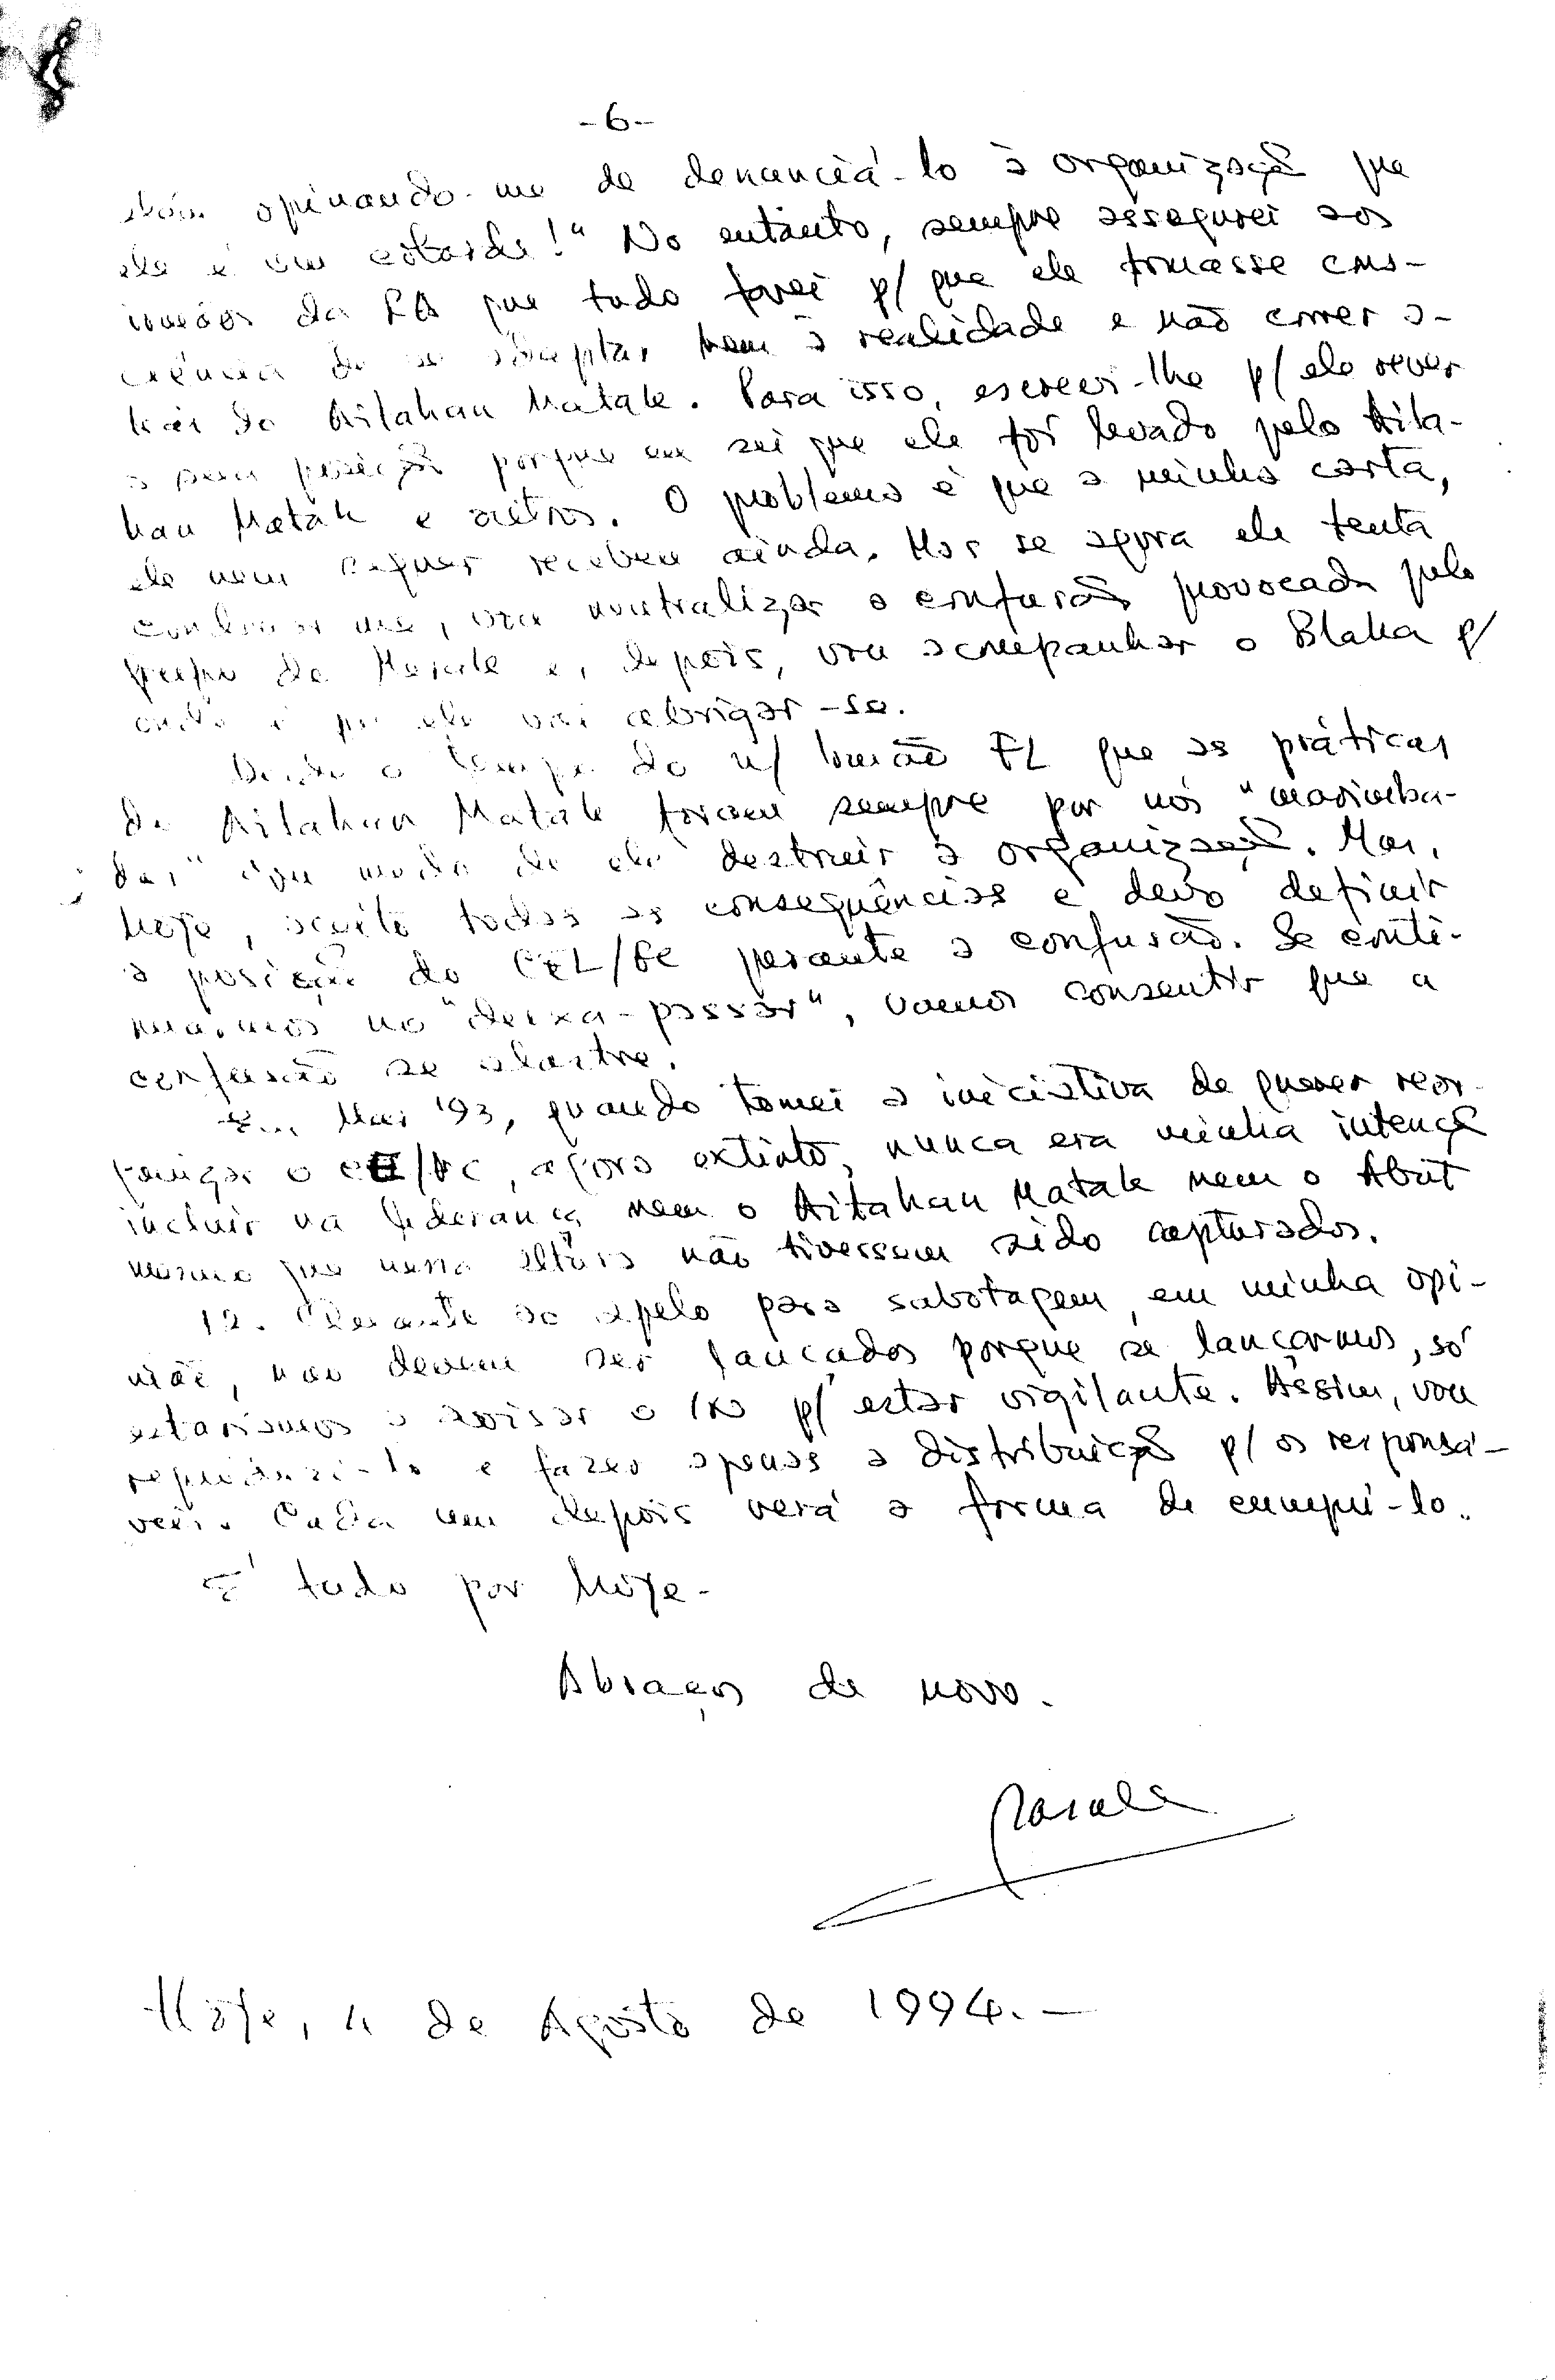 -6-
opinando-me de denunciá-lo à organização que
ele é um cobarde!" No entanto, sempre assegurei aos
irmãos da que tudo farei p/ que ele tomasse cons-
ciência de se adaptar bem à realidade e não correr a-
trás do Aitahan Matak. Para isso, escrevi-lhe p/ ele rever
a sua posição porque eu sei que ele foi levado pelo Aita-
han Matak e outros. O problema é que a minha carta,
ele nem sequer recebeu ainda. Mas se agora ele tenta
me, vou neutralizar a confusão provocada pelo
grupo da e, depois, vou acompanhar o p/
onde é que ele vai abrigar-se.
Desde o tempo do n/ Irmão FL que as práticas
do Aitahan Matak foram sempre por nós "marimba-
das" modo de ele destruir a organização. Mas,
hoje, aceito todas as consequências e devo definir
a posição do perante a confusão. Se conti-
nuarmos no "deixa-passar", vamos consentir que a
confusão se alastre.
Em '93, quando tomei a iniciativa de querer reor-
ganizar o agora extinto, nunca era minha intenção
incluir na liderança nem o Aitahan Matak nem o
mesmo que nessa altura não tivessem sido capturados.
12. ao apelo para sabotagem, em minha opi-
nião, não devem ser lançados porque se lançarmos, só
estaríamos a avisar o p/ estar vigilante. Assim, vou
reproduzi-lo e fazer apenas a distribuição p/ os responsá-
veis. Cada um depois verá a forma de cumpri-lo.
É tudo por hoje.
Abraços de novo.
Hoje, 4 de Agosto de 1994.-